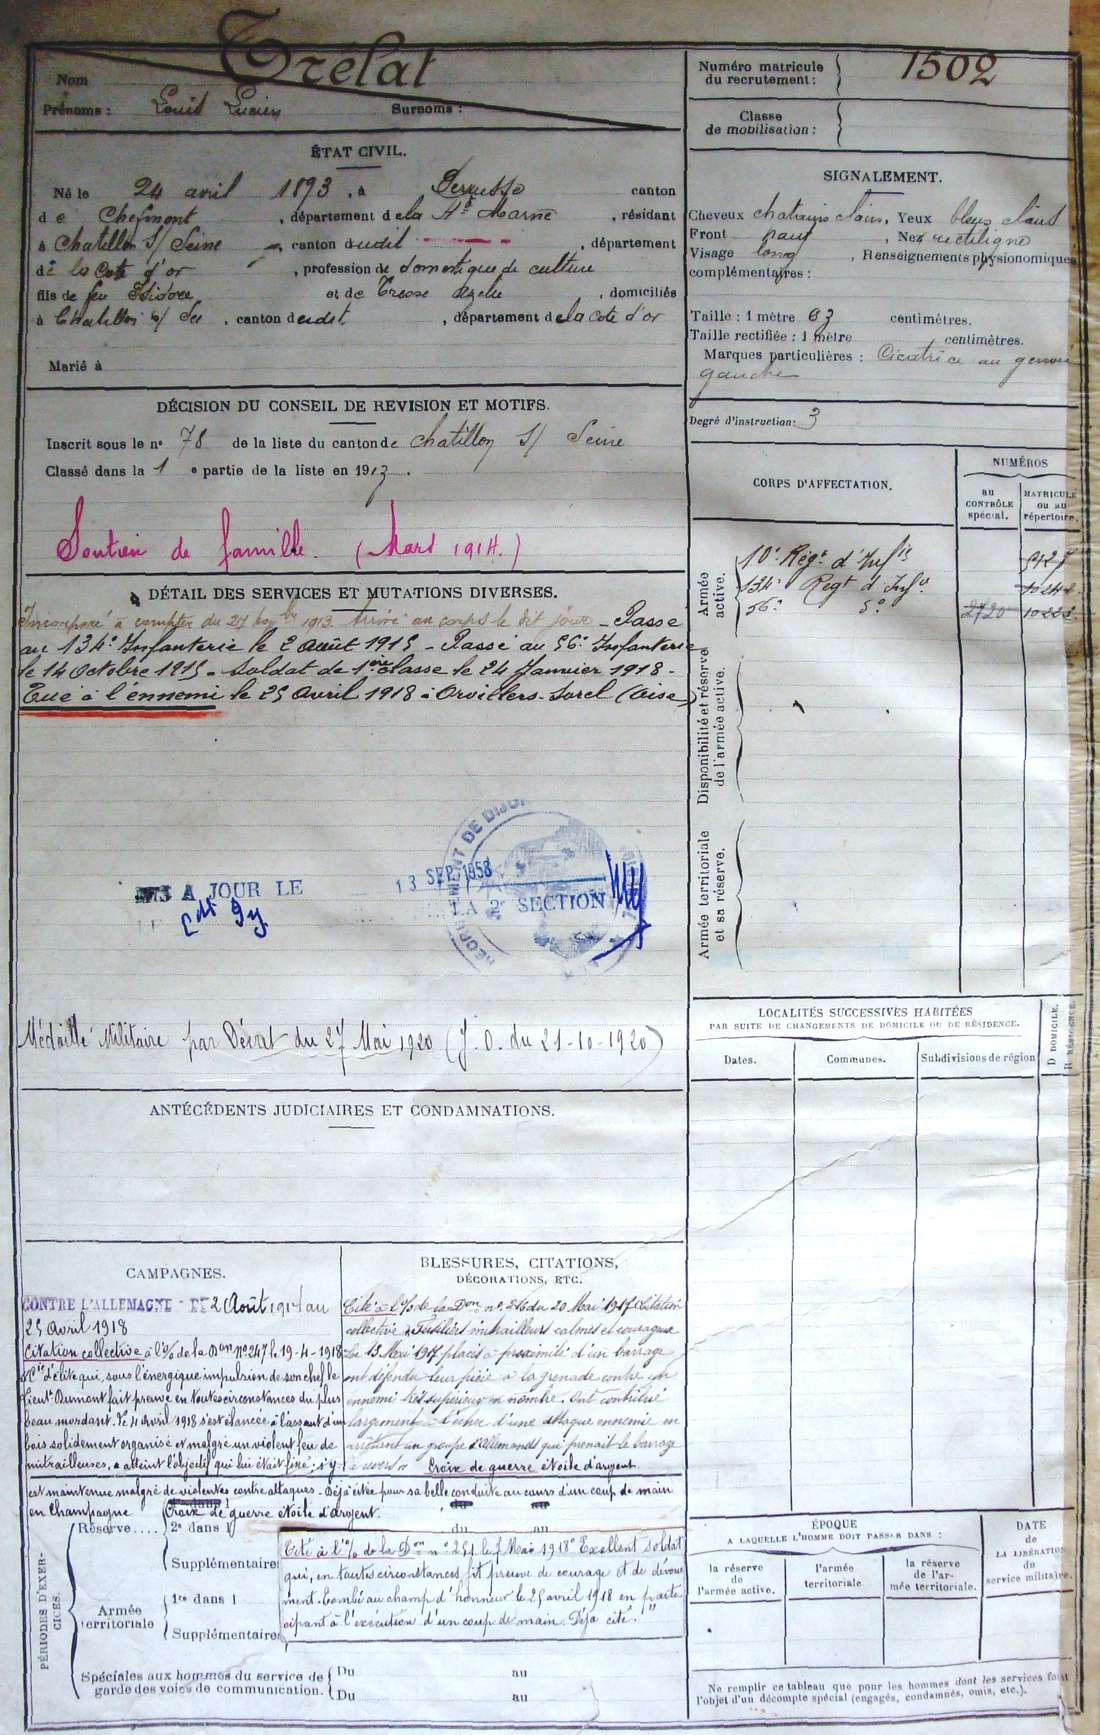 Nom Trélat
Prénoms : Louis Lucien Surnoms :
Numéro matricule du recrutement : 1502
Classe de mobilisation :
ÉTAT CIVIL.
Né le 24 avril 1893, à Perrusse canton
de Clefmont, département de la Hte Marne, résidant
à Chatillon s/ Seine, canton dudit, département
de la Cote d'or, profession de domestique de culture
fils de feu Isidore et de domiciliés
à Chatillon s/ Se, canton dudit, département de la Cote d'or
Marié à
SIGNALEMENT.
Cheveux chatains clairs, Yeux bleus clairs
Front haut, Nez rectiligne
Visage long, Renseignements physionomiques
complémentaires :
Taille : 1 mètre 63 centimètres.
Taille rectifiée : 1 mètre centimètres.
Marques particulières : Cicatrice au genou
gauche
Degré d'instruction : 3
DÉCISION DU CONSEIL DE REVISION ET MOTIFS.
Inscrit sous le no 78 de la liste du canton de Chatillon S/ Seine
Classé dans la 1 e partie de la liste en 1913.
Soutien de famille. (Mars 1914.)
CORPS D'AFFECTATION.
NUMÉROS
au CONTRÔLE spécial.
MATRICULE ou au répertoire.
Armée active.
10e Régt d'Infie
134e Regt d'Infie
56e do 2720
Disponibilité et réserve de l'armée active.
Armée territoriale et sa réserve.
DÉTAIL DES SERVICES ET MUTATIONS DIVERSES.
Incorporé à compter du 27 1913. Arrivé au corps le dit jour - Passé
au 134e Infanterie le 2 Août 1915 - Passé au 56e Infanterie
le 14 Octobre 1915 - Soldat de 1ère classe le 24 Janvier 1918 -
Tué à l'ennemi le 25 Avril 1918 à Orvillers-Sorel (Oise)
A JOUR LE
13 SEP. 1958
LA 2e SECTION
RECRUTEMENT DE DIJON
Médaille Militaire par Décret du 27 Mai 1920 (J.O. du 21-10-1920)
LOCALITÉS SUCCESSIVES HABITÉES
PAR SUITE DE CHANGEMENTS DE DOMICILE OU DE RÉSIDENCE.
Dates. Communes. Subdivisions de région
D DOMICILE.
R RÉSIDENCE.
ANTÉCÉDENTS JUDICIAIRES ET CONDAMNATIONS.
CAMPAGNES.
CONTRE L'ALLEMAGNE DU 2 Août 1914 au
25 Avril 1918
Citation collective à l'O/ de la Don No 247 le 19-4-1918
Cie d'élite qui, sous l'énergique impulsion de son chef le
Lieut. Dumont fait preuve en toutes circonstances du plus
beau mordant. Le 4 avril 1918 s'est élancée à l'assaut d'un
bois solidement organisé et malgré un violent feu de
mitrailleuses, a atteint l'objectif qui lui était fixé ; s'y
est maintenue malgré de violentes contre attaques. Déjà citée pour sa belle conduite au cours d'un coup de main
en Champagne Croix de guerre étoile d'argent.
BLESSURES, CITATIONS,
DÉCORATIONS, ETC.
Cité à l'O/ de la Don no du 20 Mai 1917 Citation
collective Fusiliers mitrailleurs calmes et courageux
Le 15 Mai 1917 placés à proximité d'un barrage
ont défendu leur pièce à la grenade contre un
ennemi très supérieur en nombre. Ont contribué
largement à l'échec d'une attaque ennemie en
un groupe d'Allemands qui prenait le barrage
à revers. Croix de guerre étoile d'argent
Cité à l'O/ de la Don no 251 le 7 Mai 1918 "Excellent soldat
qui, en toutes circonstances fit preuve de courage et de dévoue
ment. Tombé au champ d'honneur le 25 avril 1918 en parti-
cipant à l'exécution d'un coup de main. Déjà cité."
PÉRIODES D'EXERCICES.
Réserve.... 2e dans l du au
Supplémentaire
Armée territoriale
1re dans l
Supplémentaire
Spéciales aux hommes du service de garde des voies de communication.
Du au
Du au
ÉPOQUE
A LAQUELLE L'HOMME DOIT PASSER DANS :
la réserve de l'armée active.
l'armée territoriale.
la réserve de l'armée territoriale.
DATE de LA LIBÉRATION du service militaire.
Ne remplir ce tableau que pour les hommes dont les services font
l'objet d'un décompte spécial (engagés, condamnés, omis, etc.).